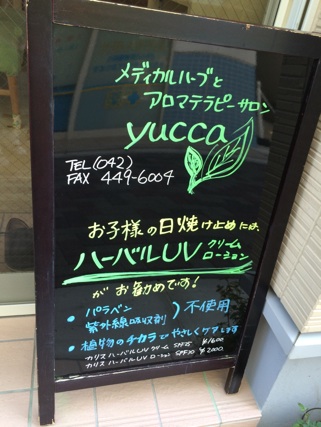 メディカルハーブと
アロマテラピーサロン
yucca
TEL(042)
FAX 449-6004
お子様の日焼け止めには、
ハーバルUV クリーム
ローション
がお勧めです!
・パラベン
紫外線吸収剤 )不使用
・植物のチカラでやさしくケアします
カリス ハーバルUV クリーム SPF25 ¥1600
カリス ハーバルUV ローション SPF20 ¥2000